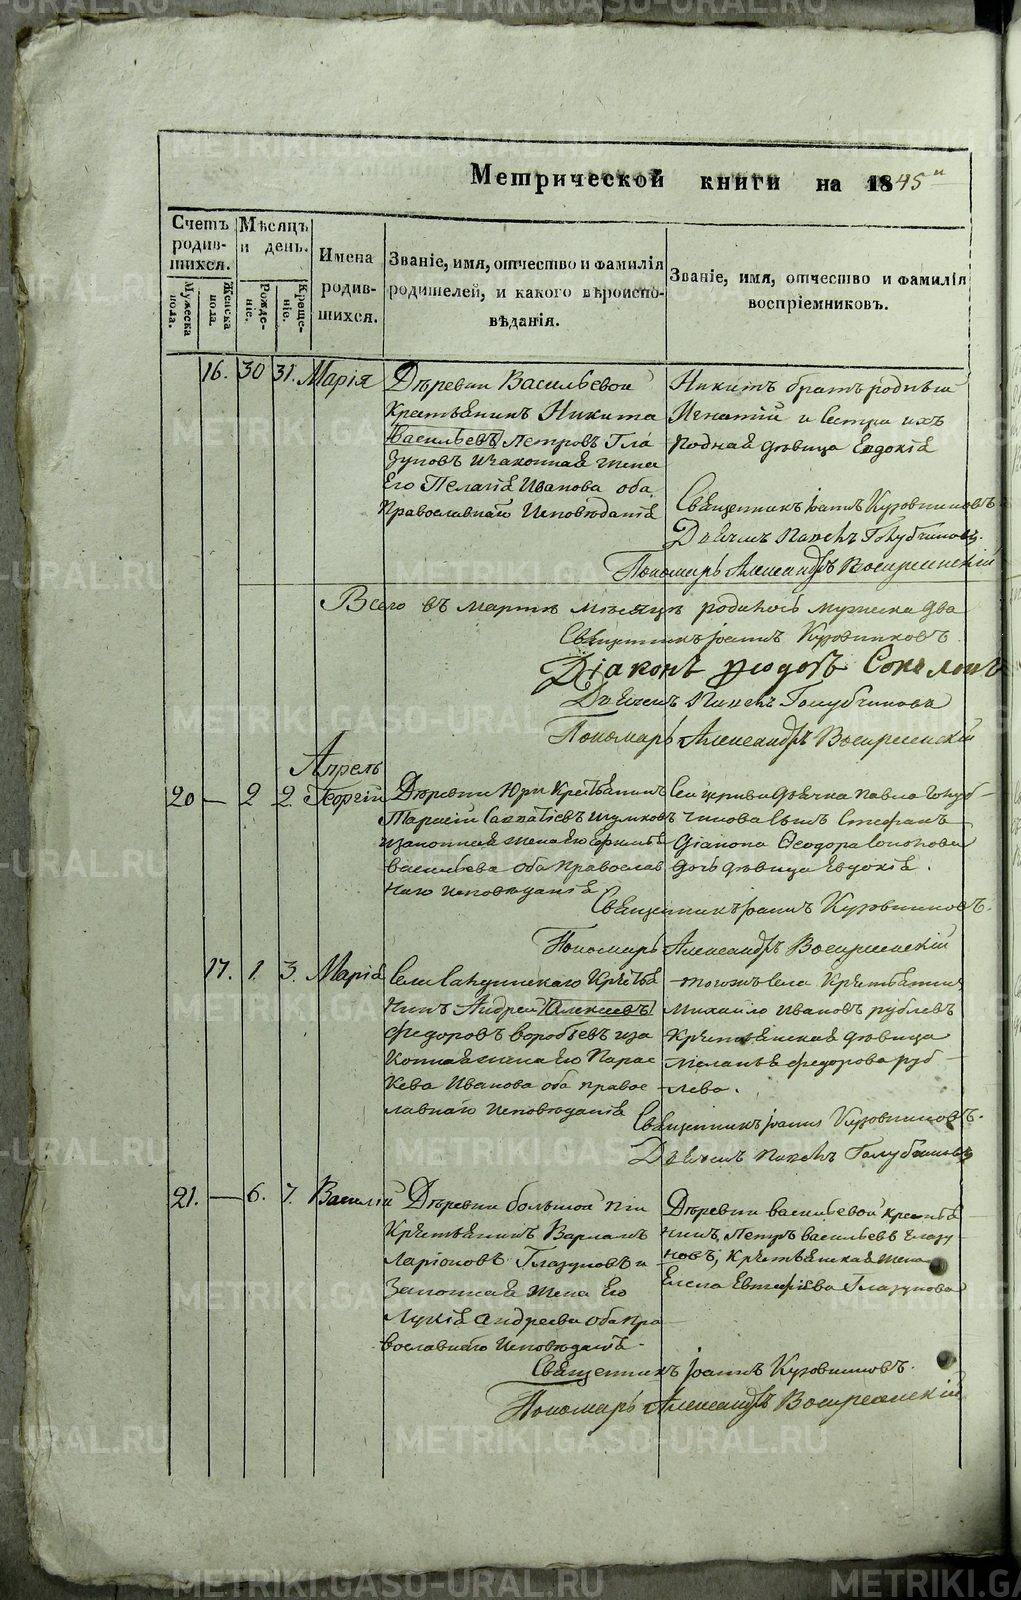 Метрической книги на 1845й
Счетъ родившихся.
Мужеска пола.
Женска пола.
Мѣсяцъ и день.
Рожденіе.
Крещеніе.
Имена родившихся.
Званіе, имя, отчество и фамилія
родителей, и какого вѣроиспо-
вѣданія.
Званіе, имя, отчество и фамилія
воспріемниковъ.
16. 30 31. Марія
Деревни Васильевой
Крестьянинъ Никита
Васильевъ Петровъ Гла
зуновъ изаконная жена
Его Пелагія Иванова оба
Православнаго Исповѣданія
Никитъ братъ родный
Игнатій и Сестра ихъ
Родная дѣвица Евдокія
Священникъ Іоаннъ Кузовниковъ
Дьячекъ Павелъ Голубчиковъ.
Пономарь Александръ Воскресенскій
Всего въ Мартѣ мѣсяцѣ родилось мужеска два
Священникъ Іоаннъ Кузовниковъ.
Діаконъ Ѳеодоръ Соколовъ
Дьячекъ Павелъ Голубчиковъ
Пономарь Александръ Воскресенскій
Апрель
20 — 2 2. Георгій
Деревни Юри Крестьянинъ
Тарасій Савватіевъ Шумковъ
изаконная жена его
Васильева оба Православ
наго исповѣданія
Сей церкви дьячка Павла Голуб-
чикова Сынъ Стефанъ
діакона Ѳеодора Соколова
дочь дѣвица Евдокія.
Священникъ Іоаннъ Кузовниковъ.
Пономарь Александръ Воскресенскій
17. 1. 3. Марія
Села Крестья
нинъ Андрей Алексеевъ
Федоровъ Воробьевъ иза
конная жена его Парас
кева Иванова оба право
славнаго исповѣданія
тогожъ села Крестьянинъ
Михайло Ивановъ рублевъ
Крестьянская дѣвица
Меланья федорова руб
лева.
Священникъ Іоаннъ Кузовниковъ.
Дьячекъ Павелъ Голубчиковъ
21. — 6. 7. Василій
Деревни большой
Крестьянинъ Варламъ
Ларіоновъ Глазуновъ и
Законная жена Его
Лукія андреева оба пра
вославнаго исповѣданія.
Деревни васильевой крестья
нинъ, Петръ васильевъ глазу
новъ, крестьянская жена
Елена Евтифіева Глазунова
Священникъ Іоаннъ Кузовниковъ.
Пономарь Александръ Воскресенскій
METRIKI.GASO-URAL.RU